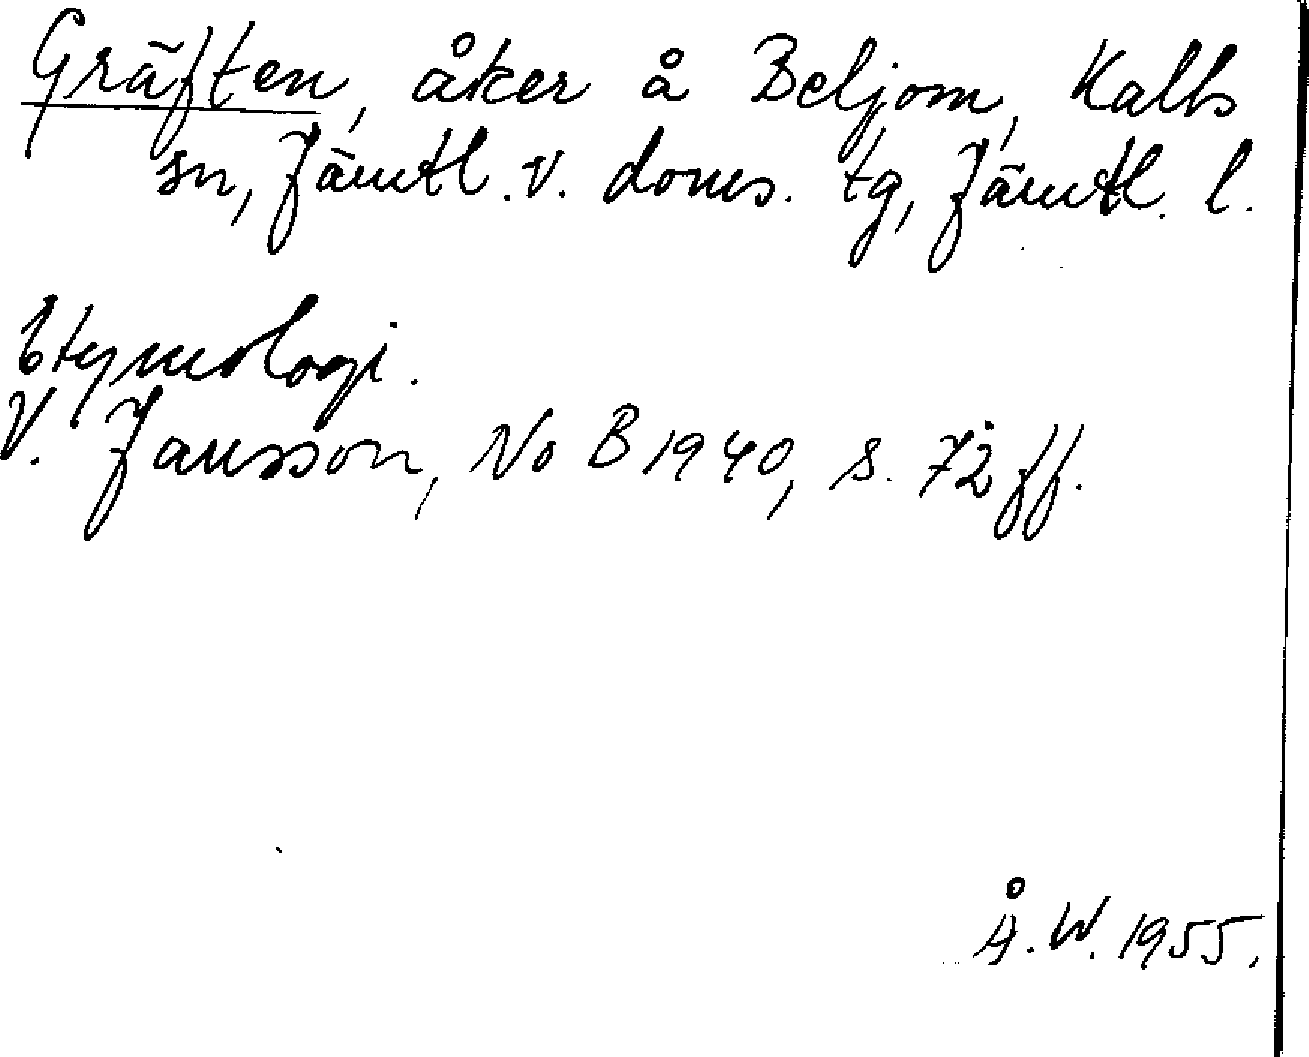 Gräften, åker å Beljom, Kalls
sn, Jämtl. v. doms. tg, Jämtl. l.
Etymologi.
V. Jansson, NoB 1940, s. 72 ff.
Å. W. 1955.